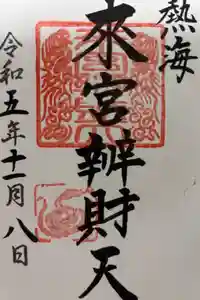 熱海
來宮辦財天
令和五年十一月八日